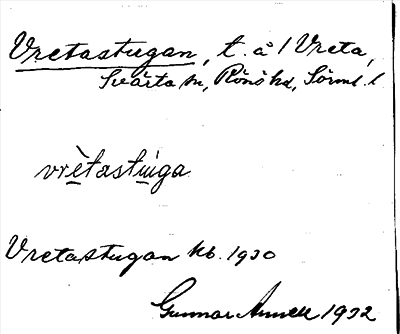 Vretastugan, t. å 1 Vreta,
Svärta sn, Rönö hd, Sörml. l
vrètastu̇ga
Vretastugan kb. 1930
Gunnar Annell 1932